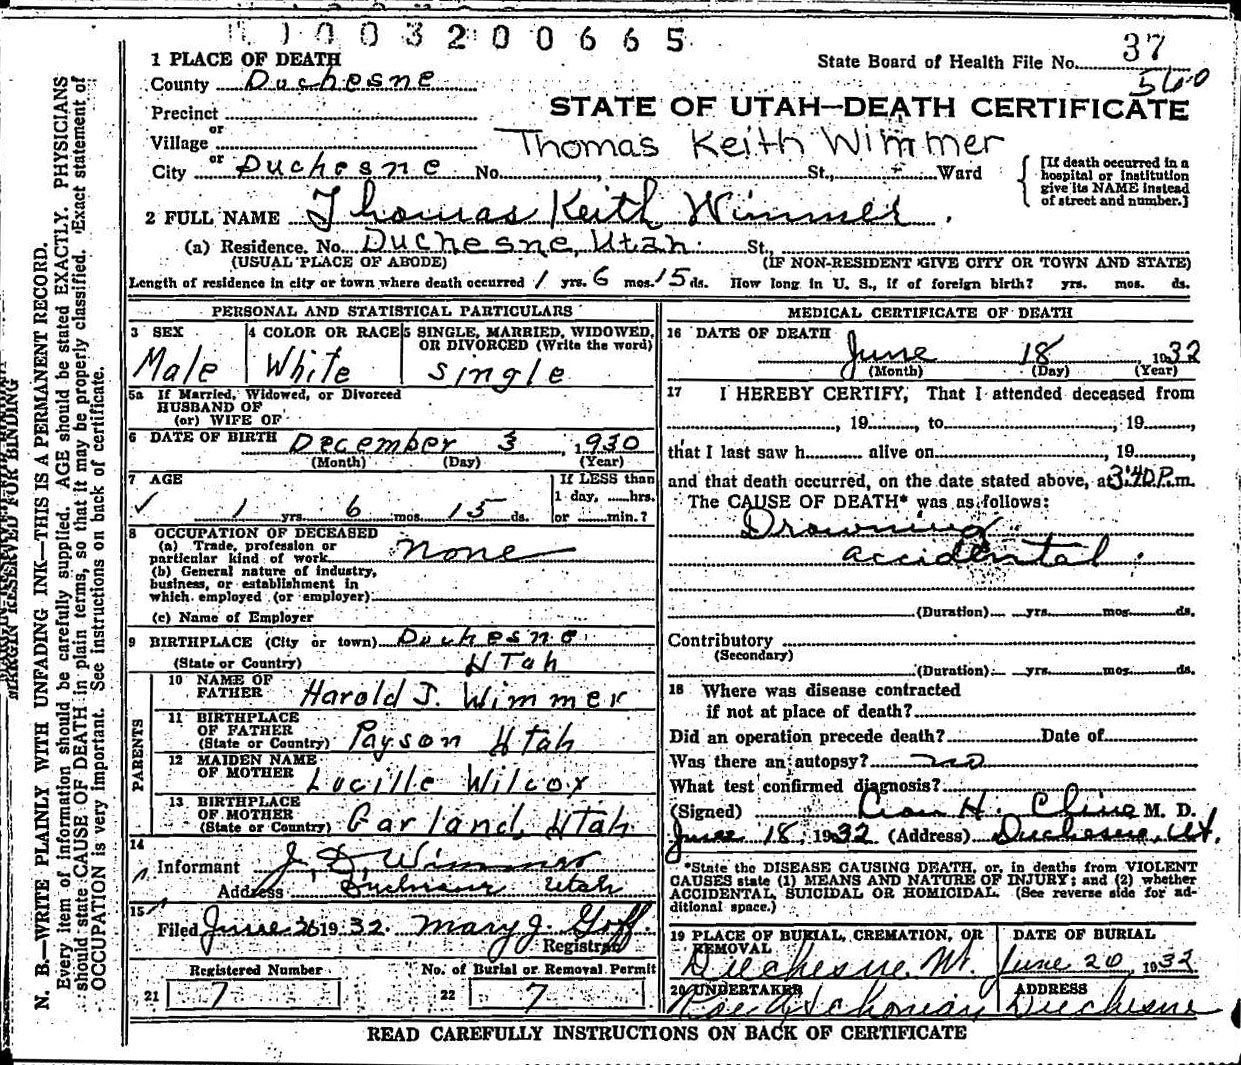 1003200665
1 PLACE OF DEATH
State Board of Health File No. 37
County Duchesne
560
STATE OF UTAH—DEATH CERTIFICATE
Precinct
or
Village
Thomas Keith Wimmer
or
City Duchesne No. , St., Ward
[If death occurred in a
hospital or institution
give its NAME instead
of street and number.]
2 FULL NAME Thomas Keith Wimmer
(a) Residence. No. Duchesne, Utah. St.,
(USUAL PLACE OF ABODE) (IF NON-RESIDENT GIVE CITY OR TOWN AND STATE)
Length of residence in city or town where death occurred 1 yrs. 6 mos. 15 ds. How long in U. S., if of foreign birth? yrs. mos. ds.
PERSONAL AND STATISTICAL PARTICULARS
3 SEX
Male
4 COLOR OR RACE
White
5 SINGLE, MARRIED, WIDOWED,
OR DIVORCED (Write the word)
single
5a If Married, Widowed, or Divorced
HUSBAND OF
(or) WIFE OF
6 DATE OF BIRTH December 3, 1930
(Month) (Day) (Year)
7 AGE
1 yrs. 6 mos. 15 ds.
If LESS than
1 day, hrs.
or min.?
8 OCCUPATION OF DECEASED
(a) Trade, profession or
particular kind of work none
(b) General nature of industry,
business, or establishment in
which employed (or employer)
(c) Name of Employer
9 BIRTHPLACE (City or town) Duchesne
(State or Country) Utah
PARENTS
10 NAME OF
FATHER Harold J. Wimmer
11 BIRTHPLACE
OF FATHER
(State or Country) Payson Utah
12 MAIDEN NAME
OF MOTHER Lucille Wilcox
13 BIRTHPLACE
OF MOTHER
(State or Country) Garland, Utah
14
Informant J. D. Wimmer
Address Duchesne Utah
15
Filed June 26 1932. Mary J. Goff
Registrar
Registered Number
21 7
No. of Burial or Removal Permit
22 7
MEDICAL CERTIFICATE OF DEATH
16 DATE OF DEATH
June 18, 1932
(Month) (Day) (Year)
17 I HEREBY CERTIFY, That I attended deceased from
, 19 , to , 19 ,
that I last saw h alive on , 19 ,
and that death occurred, on the date stated above, at 3:40 P.m.
The CAUSE OF DEATH* was as follows:
Drowning
accidental
(Duration) yrs. mos. ds.
Contributory
(Secondary)
(Duration) yrs. mos. ds.
18 Where was disease contracted
if not at place of death?
Did an operation precede death? Date of
Was there an autopsy? no
What test confirmed diagnosis?
(Signed) H. Cline M. D.
June 18, 1932 (Address) Duchesne, Ut.
*State the DISEASE CAUSING DEATH, or, in deaths from VIOLENT
CAUSES state (1) MEANS AND NATURE OF INJURY; and (2) whether
ACCIDENTAL, SUICIDAL OR HOMICIDAL. (See reverse side for ad-
ditional space.)
19 PLACE OF BURIAL, CREMATION, OR
REMOVAL
Duchesne, Ut.
DATE OF BURIAL
June 20, 1932
20 UNDERTAKER
ADDRESS
Duchesne
READ CAREFULLY INSTRUCTIONS ON BACK OF CERTIFICATE
MARGIN RESERVED FOR BINDING
N. B.—WRITE PLAINLY WITH UNFADING INK—THIS IS A PERMANENT RECORD.
Every item of information should be carefully supplied. AGE should be stated EXACTLY. PHYSICIANS
should state CAUSE OF DEATH in plain terms, so that it may be properly classified. Exact statement of
OCCUPATION is very important. See instructions on back of certificate.